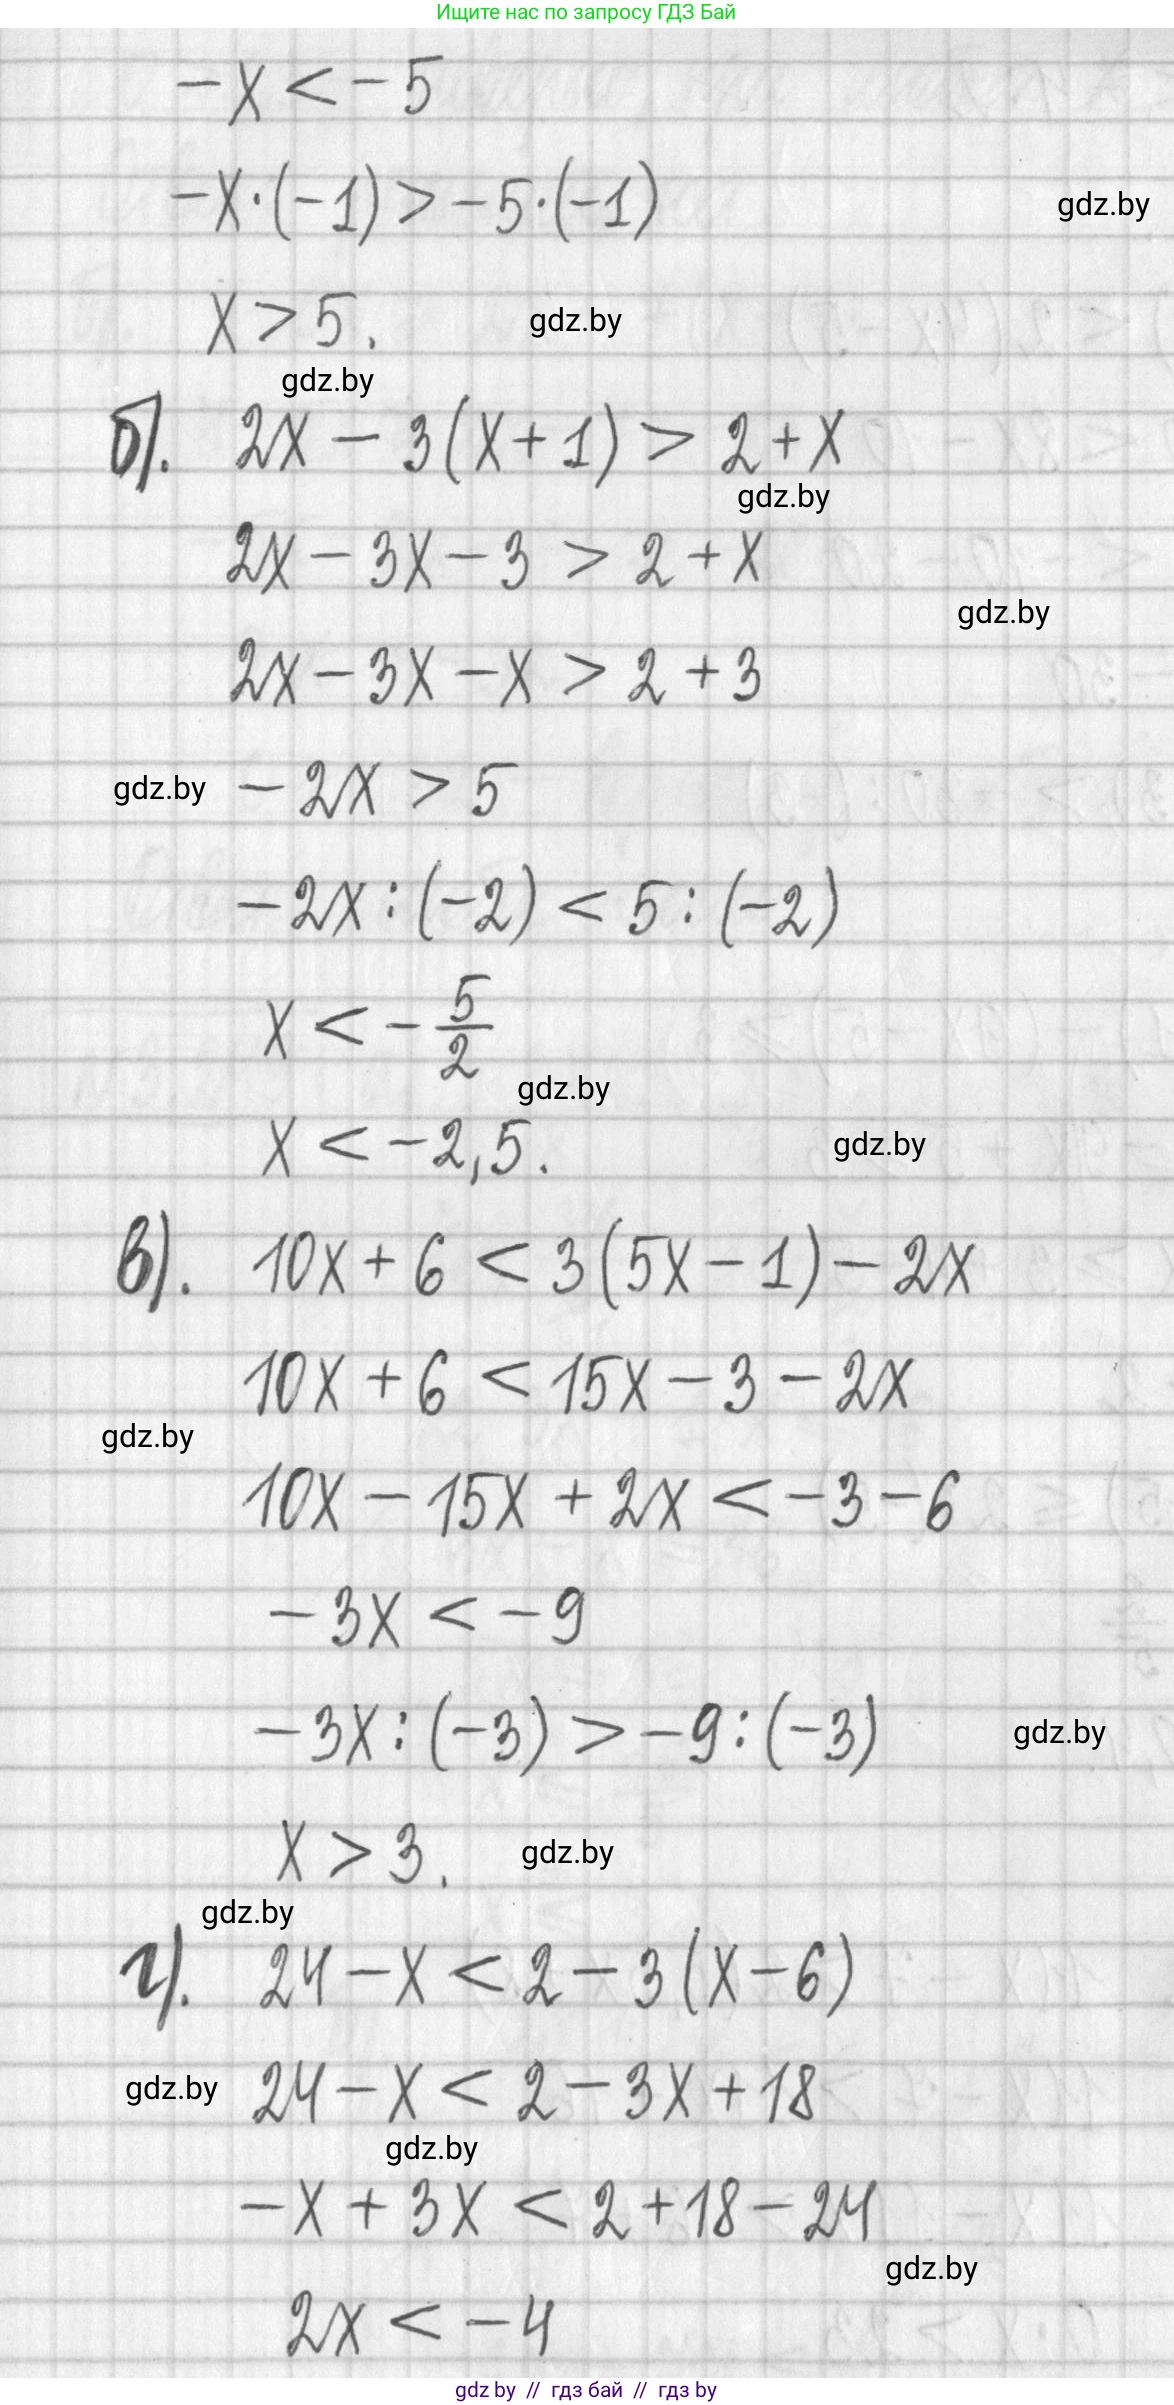 Ищите нас по запросу ГДЗ Бай
-x < -5
-x·(-1) > -5·(-1)
gdz.by
x > 5.
gdz.by
gdz.by
б). 2x - 3(x+1) > 2+x
gdz.by
2x - 3x - 3 > 2 + x
gdz.by
2x - 3x - x > 2 + 3
gdz.by
-2x > 5
-2x : (-2) < 5 : (-2)
x < -5/2
gdz.by
x < -2,5.
gdz.by
в). 10x + 6 < 3(5x - 1) - 2x
10x + 6 < 15x - 3 - 2x
gdz.by
10x - 15x + 2x < -3 - 6
-3x < -9
-3x : (-3) > -9 : (-3)
gdz.by
x > 3.
gdz.by
gdz.by
г). 24 - x < 2 - 3(x - 6)
gdz.by
24 - x < 2 - 3x + 18
gdz.by
-x + 3x < 2 + 18 - 24
gdz.by
2x < -4
gdz by // гдз бай // гдз by